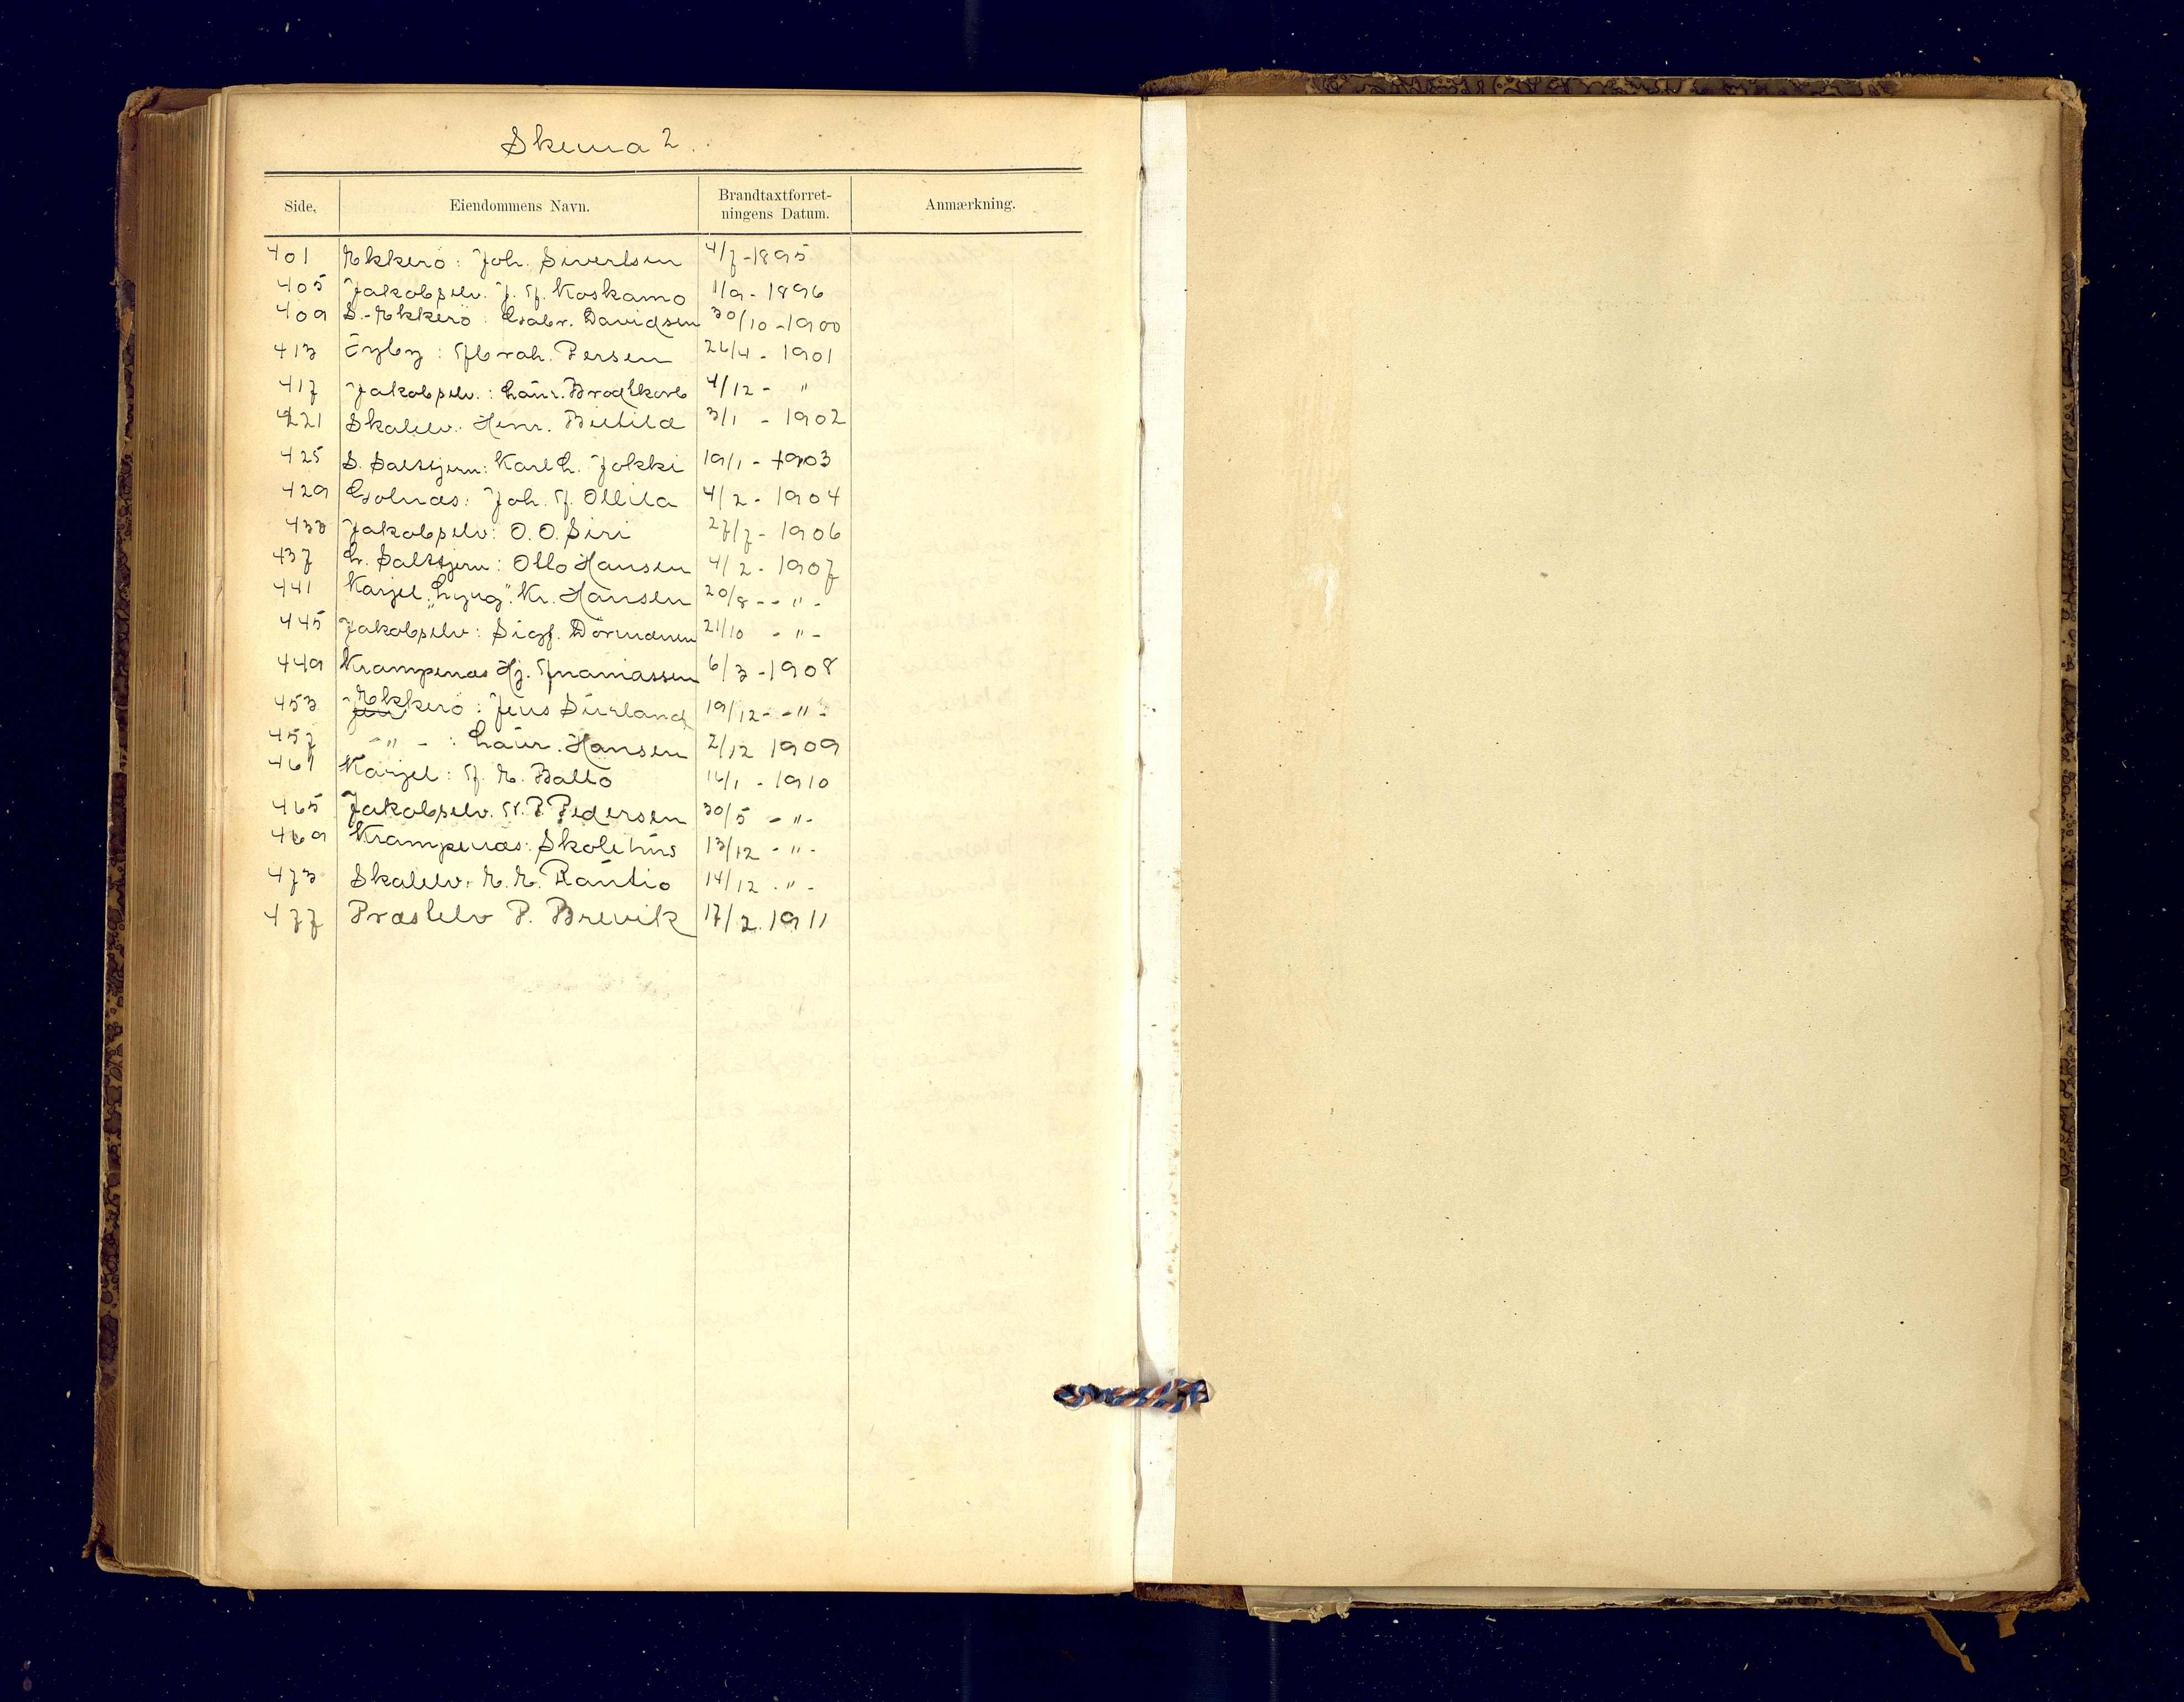 Skema 2.
Side. Eiendommens Navn. Brandtaxtforret-ningens Datum. Anmærkning.
401 Ekkerö: Joh. Sivertsen 4/7-1895
405 Jakobselv. J. A. Koskamo 1/9-1896
409 S.-Ekkerö: Gabr. Davidsen 30/10-1900
413 Öyby: Abrah. Persen 26/4-1901
417 Jakobselv.: Laur. Brodtkorb 4/12- "
421 Skalelv. Henr. Bietilæ 3/1 - 1902
425 S. Saltjern: Karl L. Jokki 19/1-1903
429 Golnæs: Joh. A. Ollila 4/2-1904
433 Jakobselv: O. O. Siri 27/7-1906
437 L. Saltjern: Otto Hansen 4/2-1907
441 Karjel „Lyng". Kr. Hansen 20/8 - - " -
445 Jakobselv: Sigf. Dörmænen 21/10 - " -
449 Krampenæs Hj. Ananiassen 6/3-1908
453 Ekkerö: Jens Suirland 19/12 - - " -
457 - " - : Laur. Hansen 2/12 1909
461 Karjel: A. E. Ballo 14/1 - 1910
465 Jakobselv. N. P. Pedersen 30/5 - " -
469 Krampenæs: Skolehus 13/12 - " -
473 Skalelv. E. E. Rantio 14/12 . " -
477 Præstelv P. Brevik 17/2. 1911